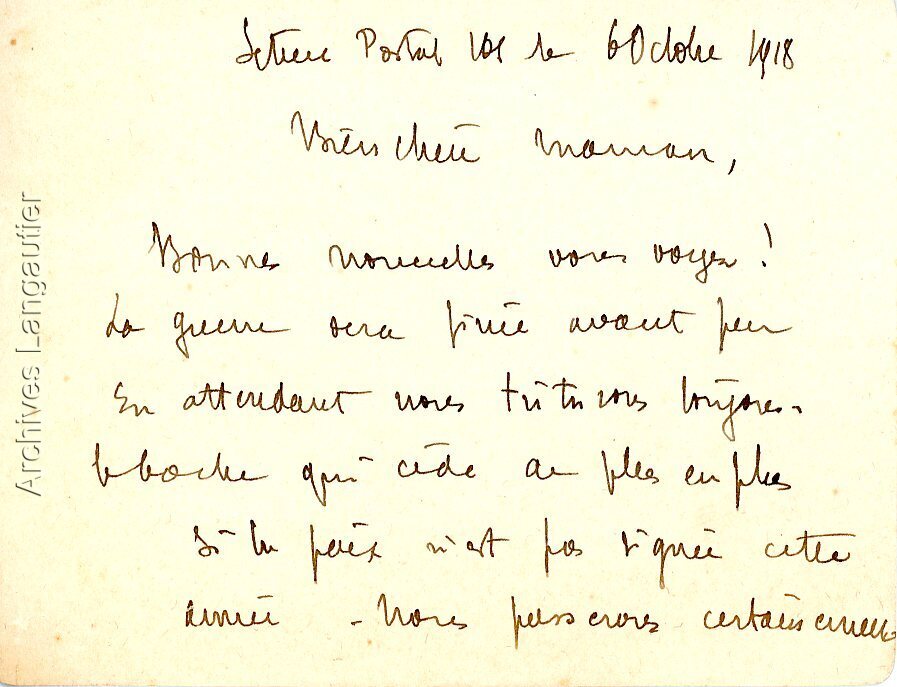 Secteur Postal 101 le 6 Octobre 1918
Bien chère maman,
Bonnes nouvelles vous voyez !
La guerre sera finie avant peu
En attendant nous toujours
le boche qui cède de plus en plus
Si la paix n'est pas signée cette
année - Nous passerons certainement
Archives Langautier